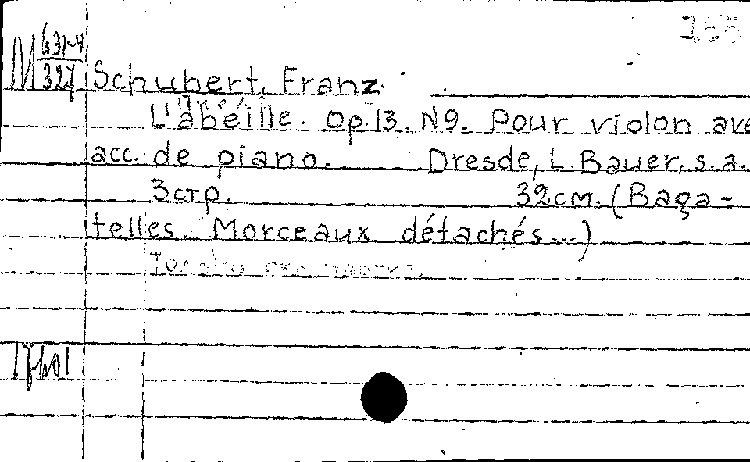 M 631-4
327 Schubert, Franz.
L'abeille. Op.13. N9. Pour violon ave
acc. de piano. Dresde, L. Bauer. s.a.
3стр. 32см. (Baga-
telles. Morceaux détachés...)